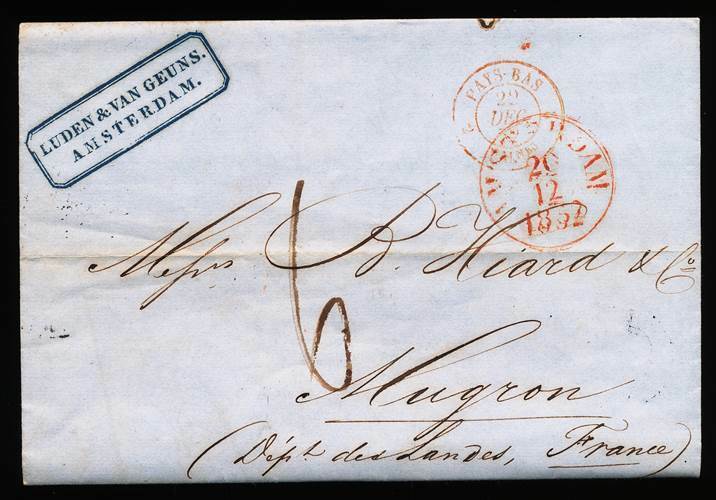 LUDEN & VAN GEUNS.
AMSTERDAM.
PAYS-BAS
22
DEC
AMSTERDAM
20
12
1852
Messrs B. Hiard & Co
6
Mugron
(Dépt des Landes, France).